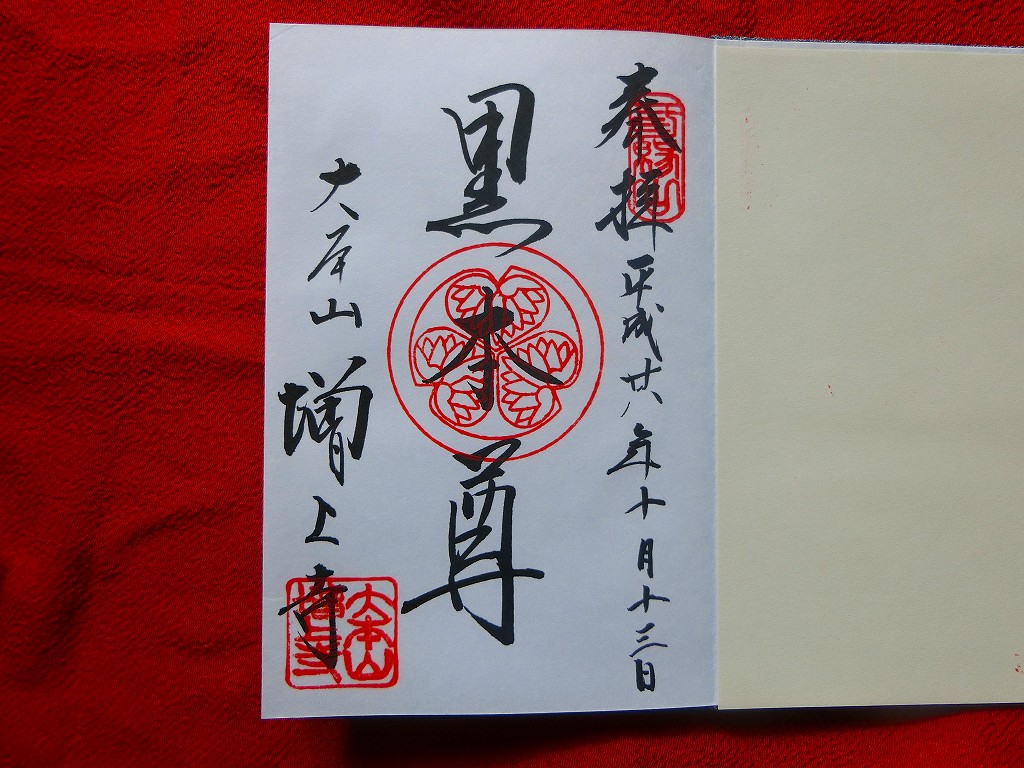 奉拝 平成廿八年十月十三日
黒本尊
大本山 増上寺
三縁山
大本山増上寺